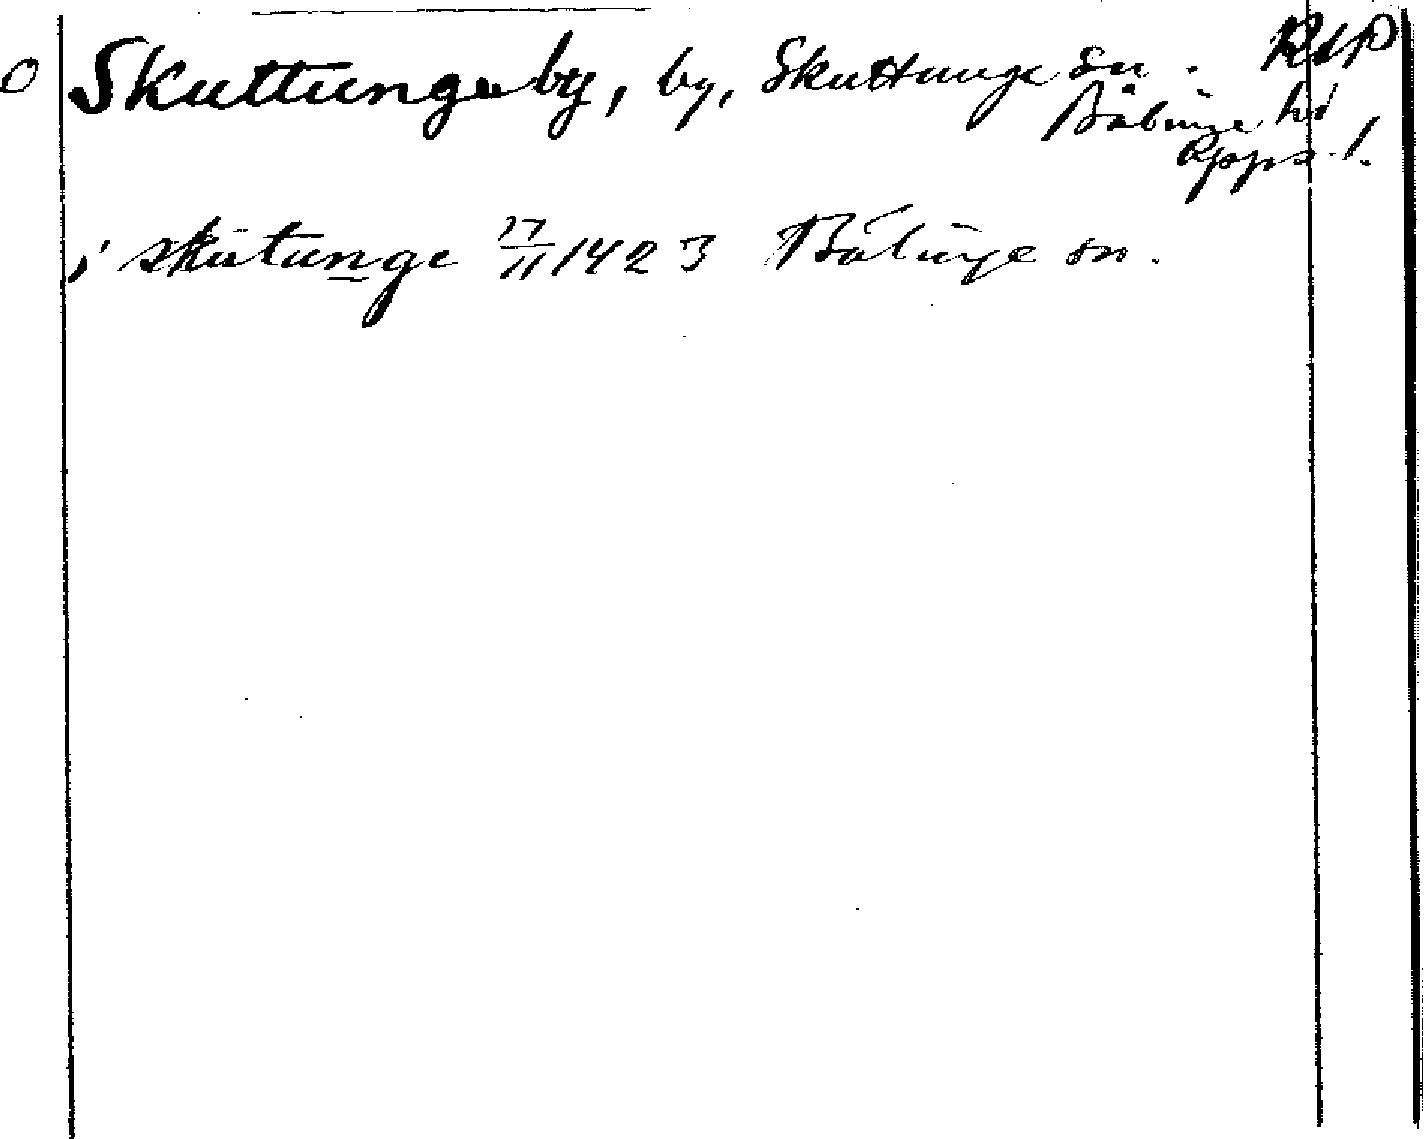 O Skuttungeby, by, Skuttunge sn. RAP
Bälinge hd
Upps. l.
i skutunge 17/11 1423 Bälinge sn.